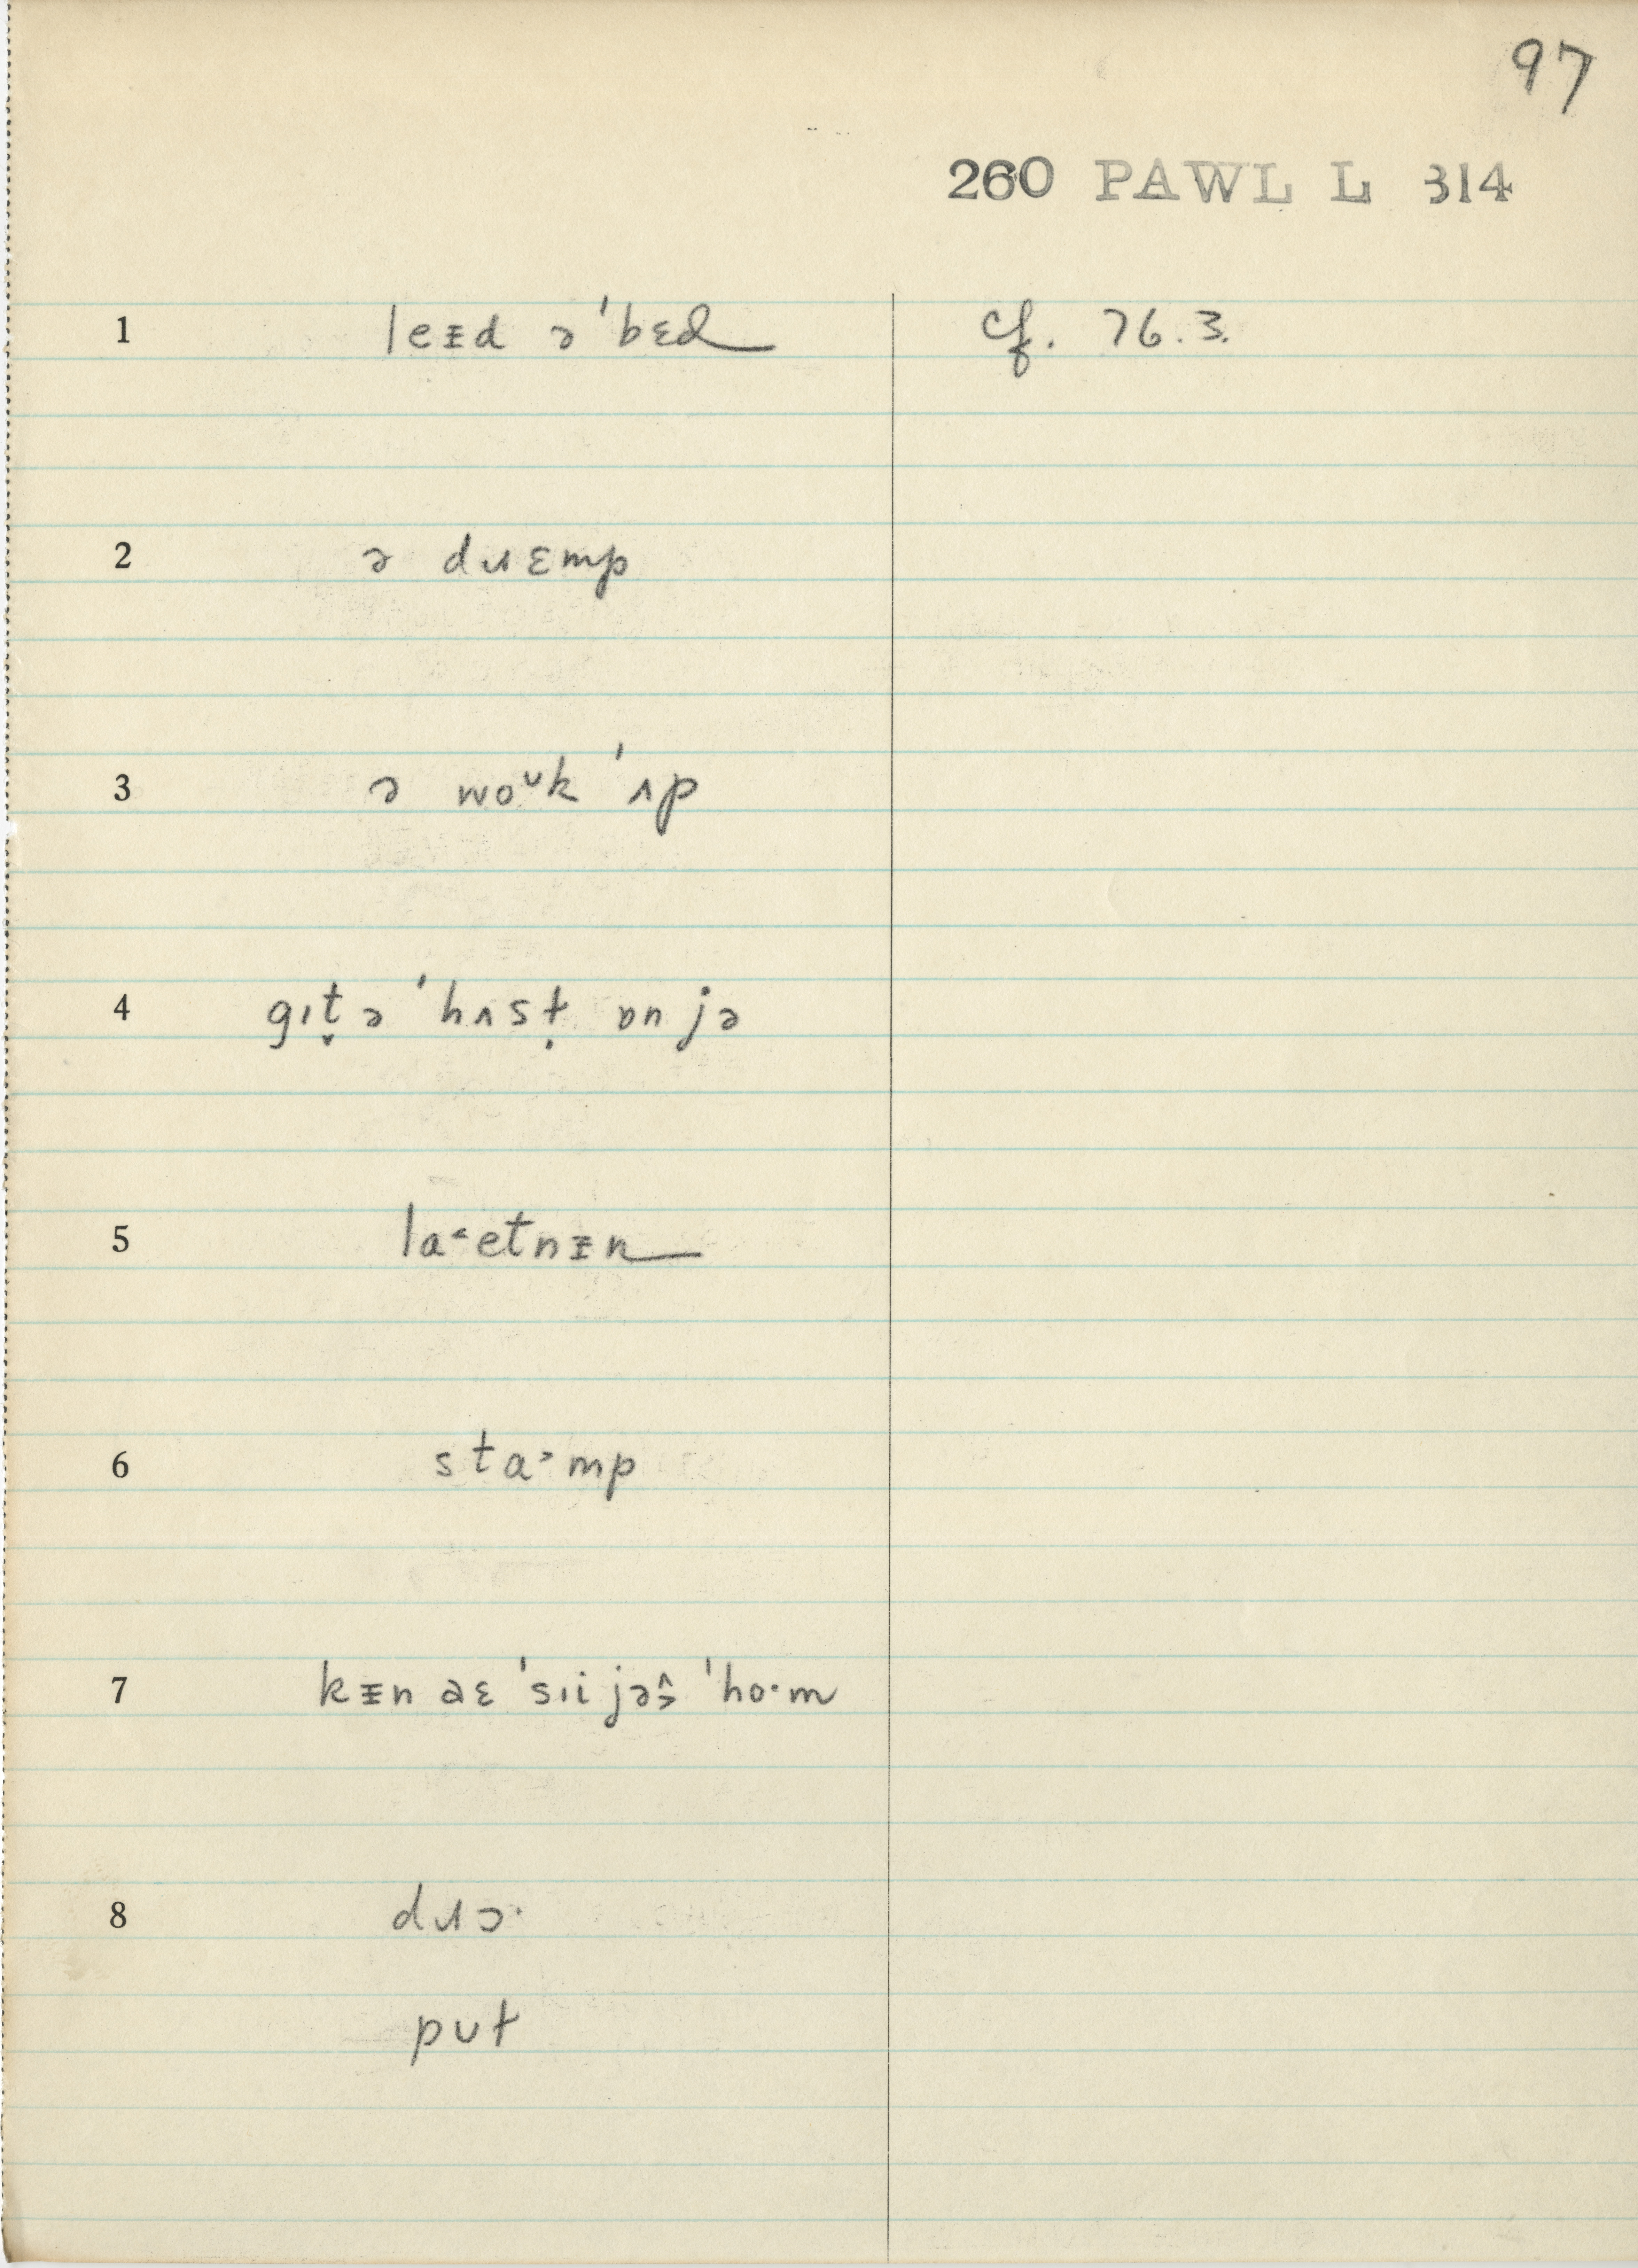 97
260 PAWL L 314
1 leᵻd ə ˈbɛd cf. 76.3.
2 ə dɹɛmp
3 ə woᶷk ˈʌp
4 gɪt̬ ə ˈhʌsṭ ɒn jə
5 la˂etnᵻn
6 sta˃mp
7 kᵻn əɛ ˈsɪi jəš ˈho·m
8 dɹɔ·
pʊt